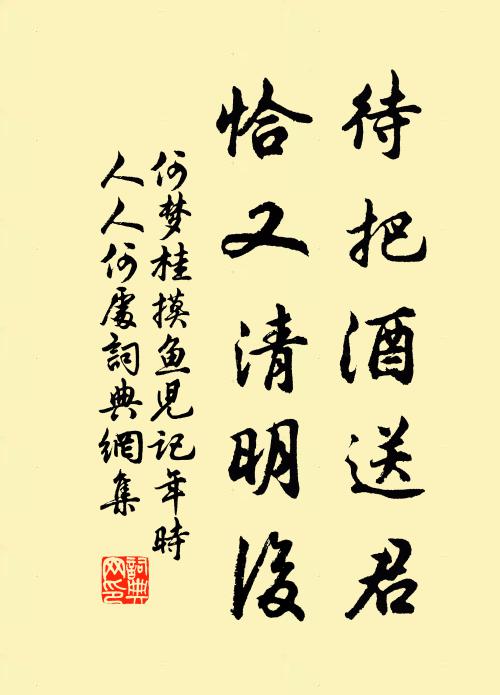 待把酒送君
恰又清明後
何梦桂摸鱼児記年時
人人何處詞典網集
詞典
网印